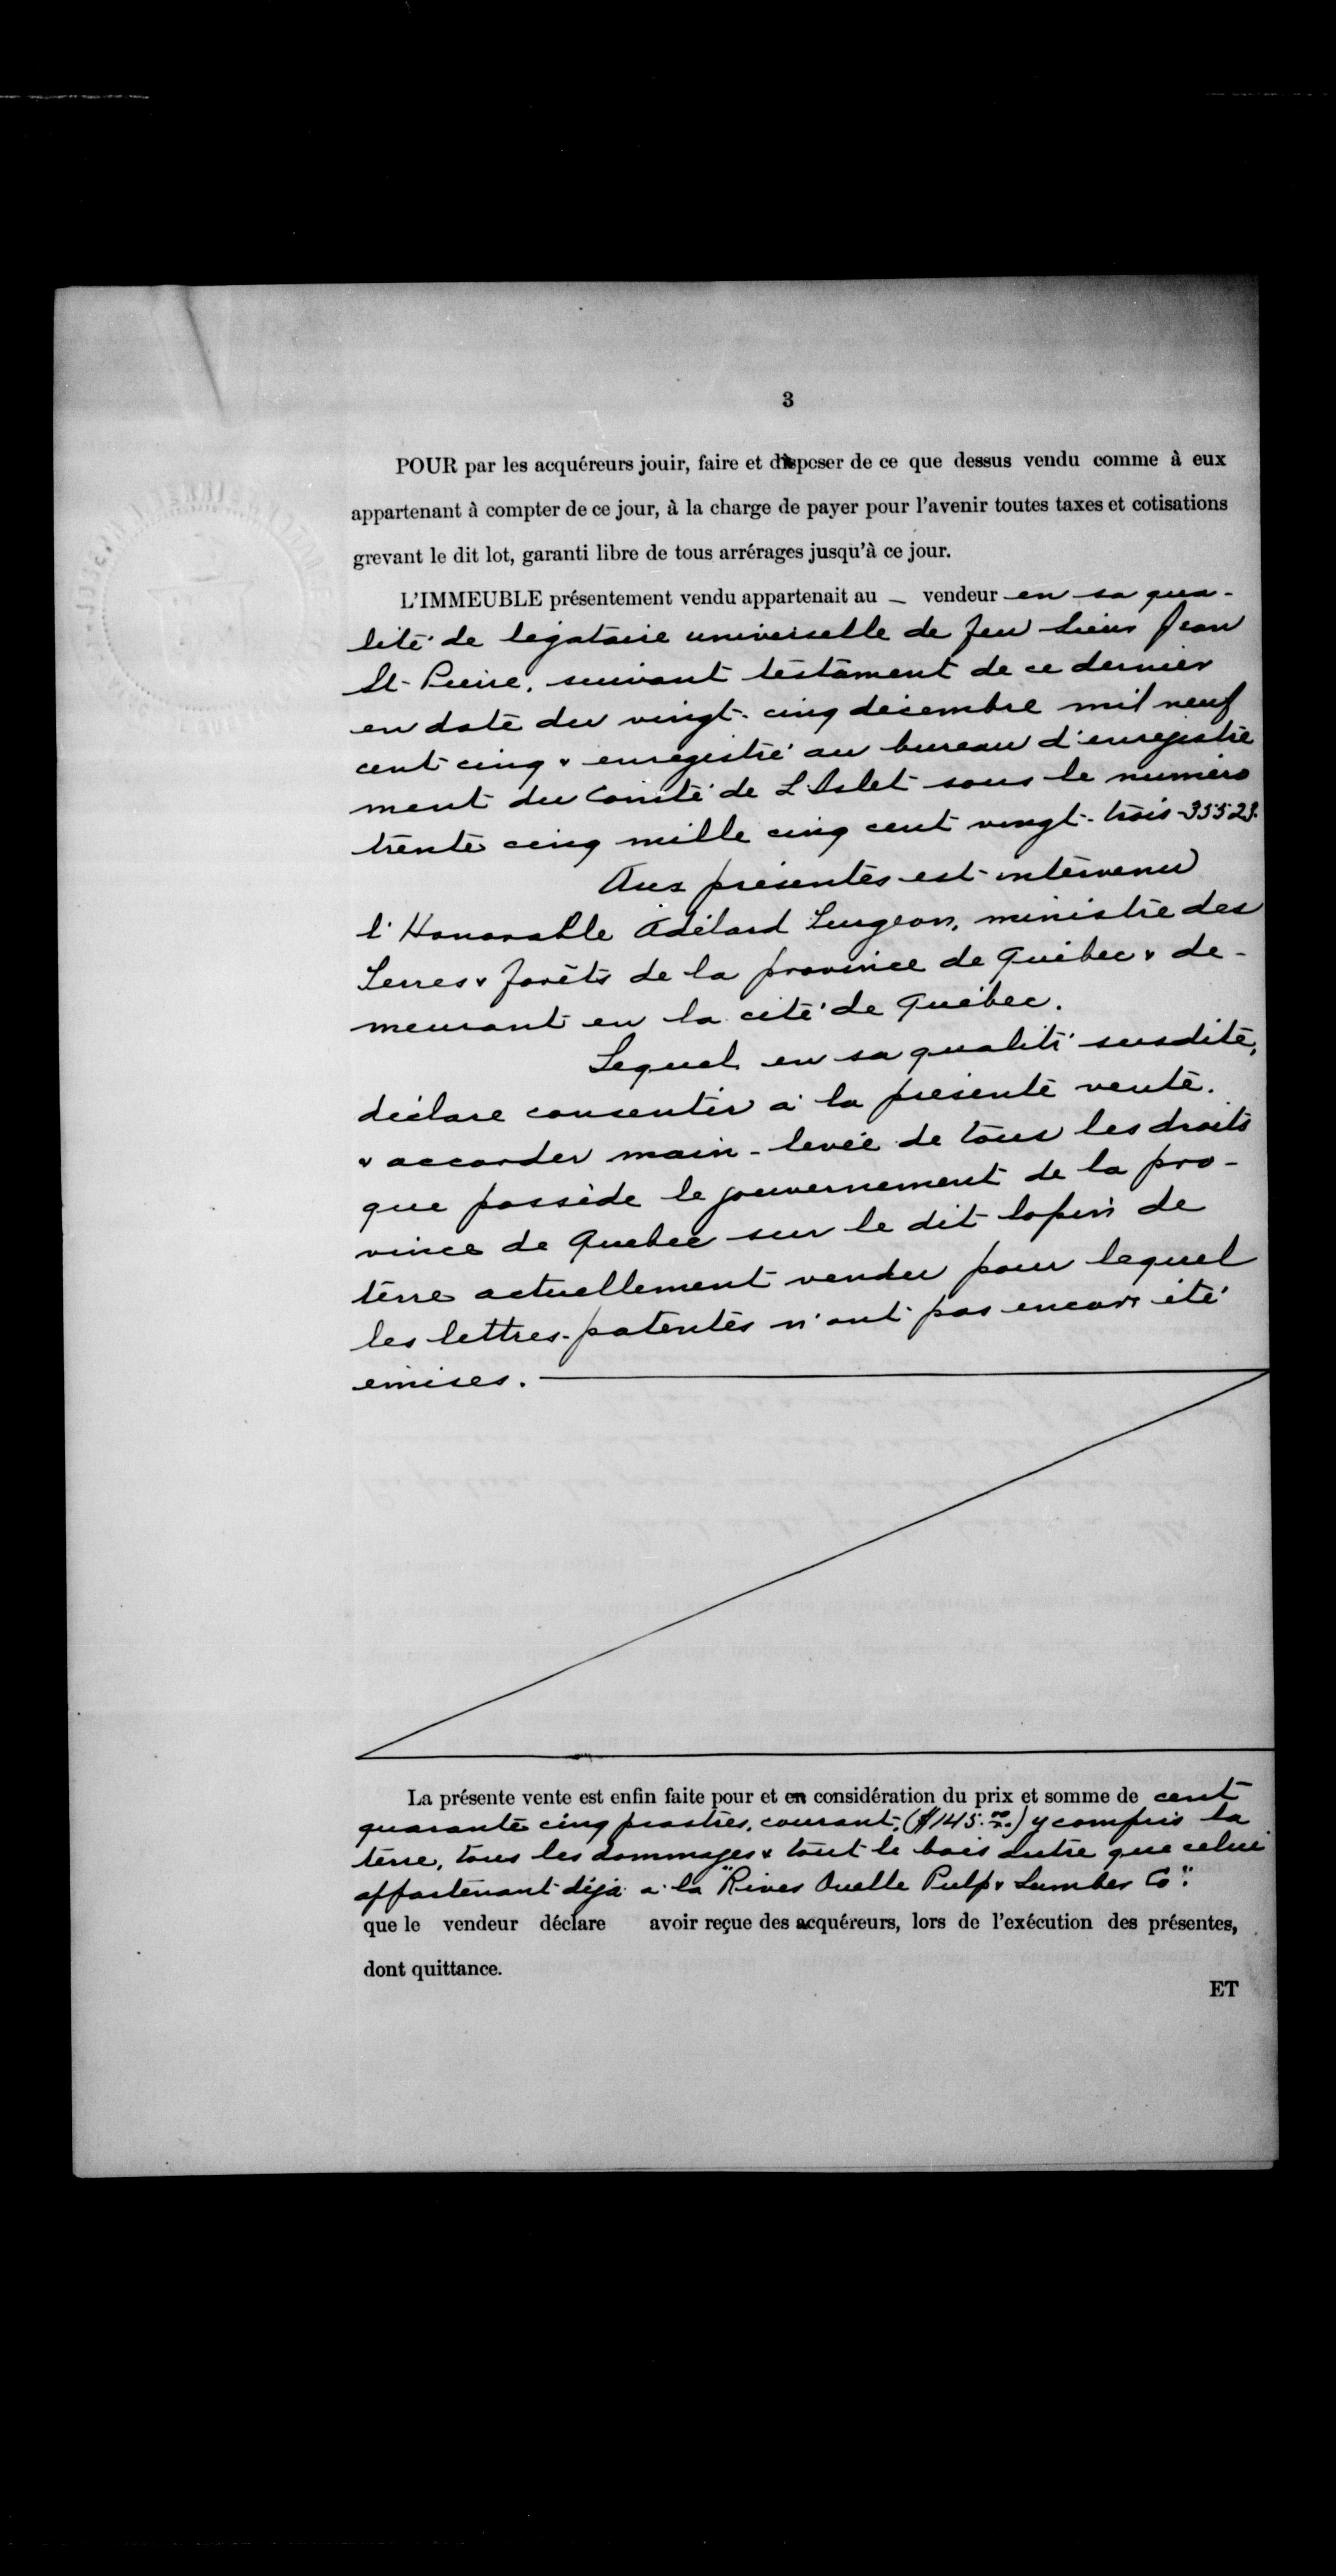 3
POUR par les acquéreurs jouir, faire et disposer de ce que dessus vendu comme à eux
appartenant à compter de ce jour, à la charge de payer pour l'avenir toutes taxes et cotisations
grevant le dit lot, garanti libre de tous arrérages jusqu'à ce jour.
L'IMMEUBLE présentement vendu appartenait au _ vendeur en sa qua-
lité de légataire universelle de feu Sieur Jean
St-Pierre, suivant testament de ce dernier
en date du vingt-cinq décembre mil neuf
cent cinq & enregistré au bureau d'enregistre
ment du Comté de L'Islet sous le numéro
trente cinq mille cinq cent vingt-trois - 35523.
Aux présentes est intervenu
l'Honorable Adélard Turgeon, ministre des
Terres & forêts de la province de Québec & de-
meurant en la cité de Québec.
Lequel en sa qualité susdite,
déclare consentir à la présente vente.
& accorder main-levée de tous les droits
que possède le gouvernement de la pro-
vince de Quebec sur le dit lopin de
terre actuellement vendu pour lequel
les lettres-patentes n'ont pas encore été
émises.
La présente vente est enfin faite pour et en considération du prix et somme de cent
quarante cinq piastres, courant, ($145.00) y compris la
terre, tous les dommages & tout le bois autre que celui
appartenant déjà à la "River Ouelle Pulp & Lumber Co".
que le vendeur déclare avoir reçue des acquéreurs, lors de l'exécution des présentes,
dont quittance.
ET